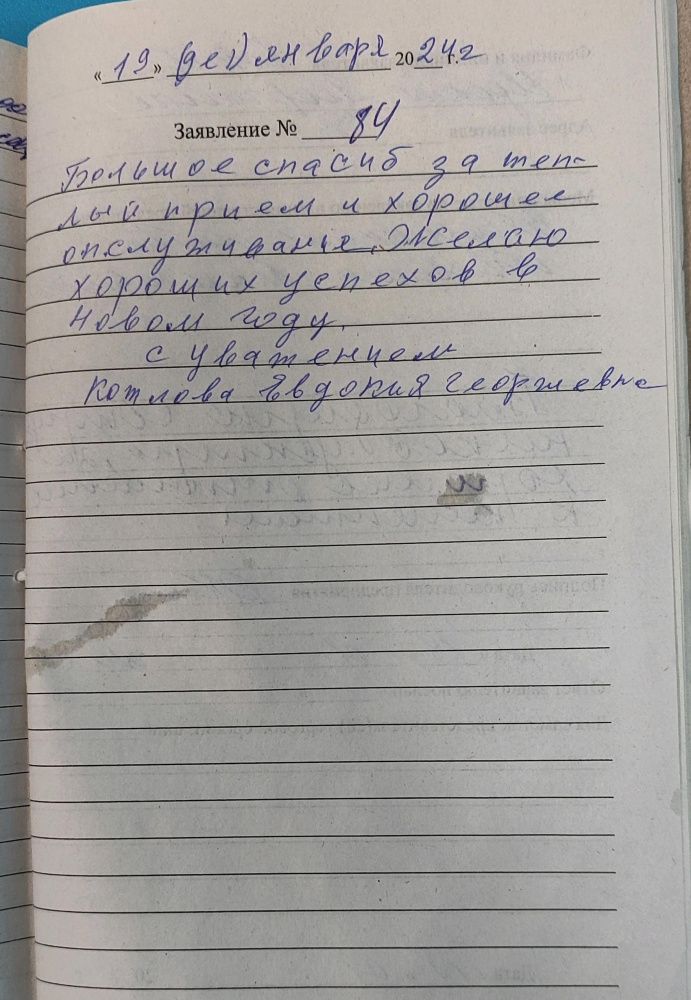 « 19 » января 2024 г.
Заявление № 84
Большое спасиб за теп-
лый прием и хорошее
опслуживание. Желаю
хороших успехов в
Новом году.
с уважением
Котлова Евдокия Георгиевна